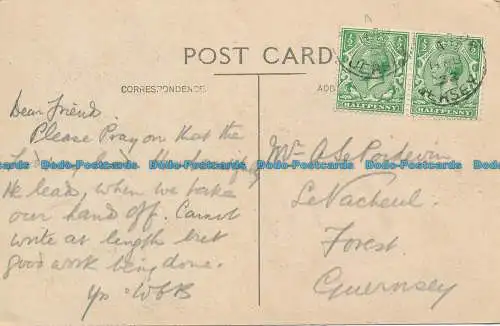 POST CARD
CORRESPONDENCE
HALFPENNY
HALFPENNY
Dear Friend
Please Pray on that the
He lead, when we take
our hand off. Cannot
write at length but
good work being done.
Yrs WSB
Mr A Le
Le Vacheul.
Forest
Guernsey
Dodo-Postcards Dodo-Postcards Dodo-Postcards Dodo-Postcards Dodo-Postcards